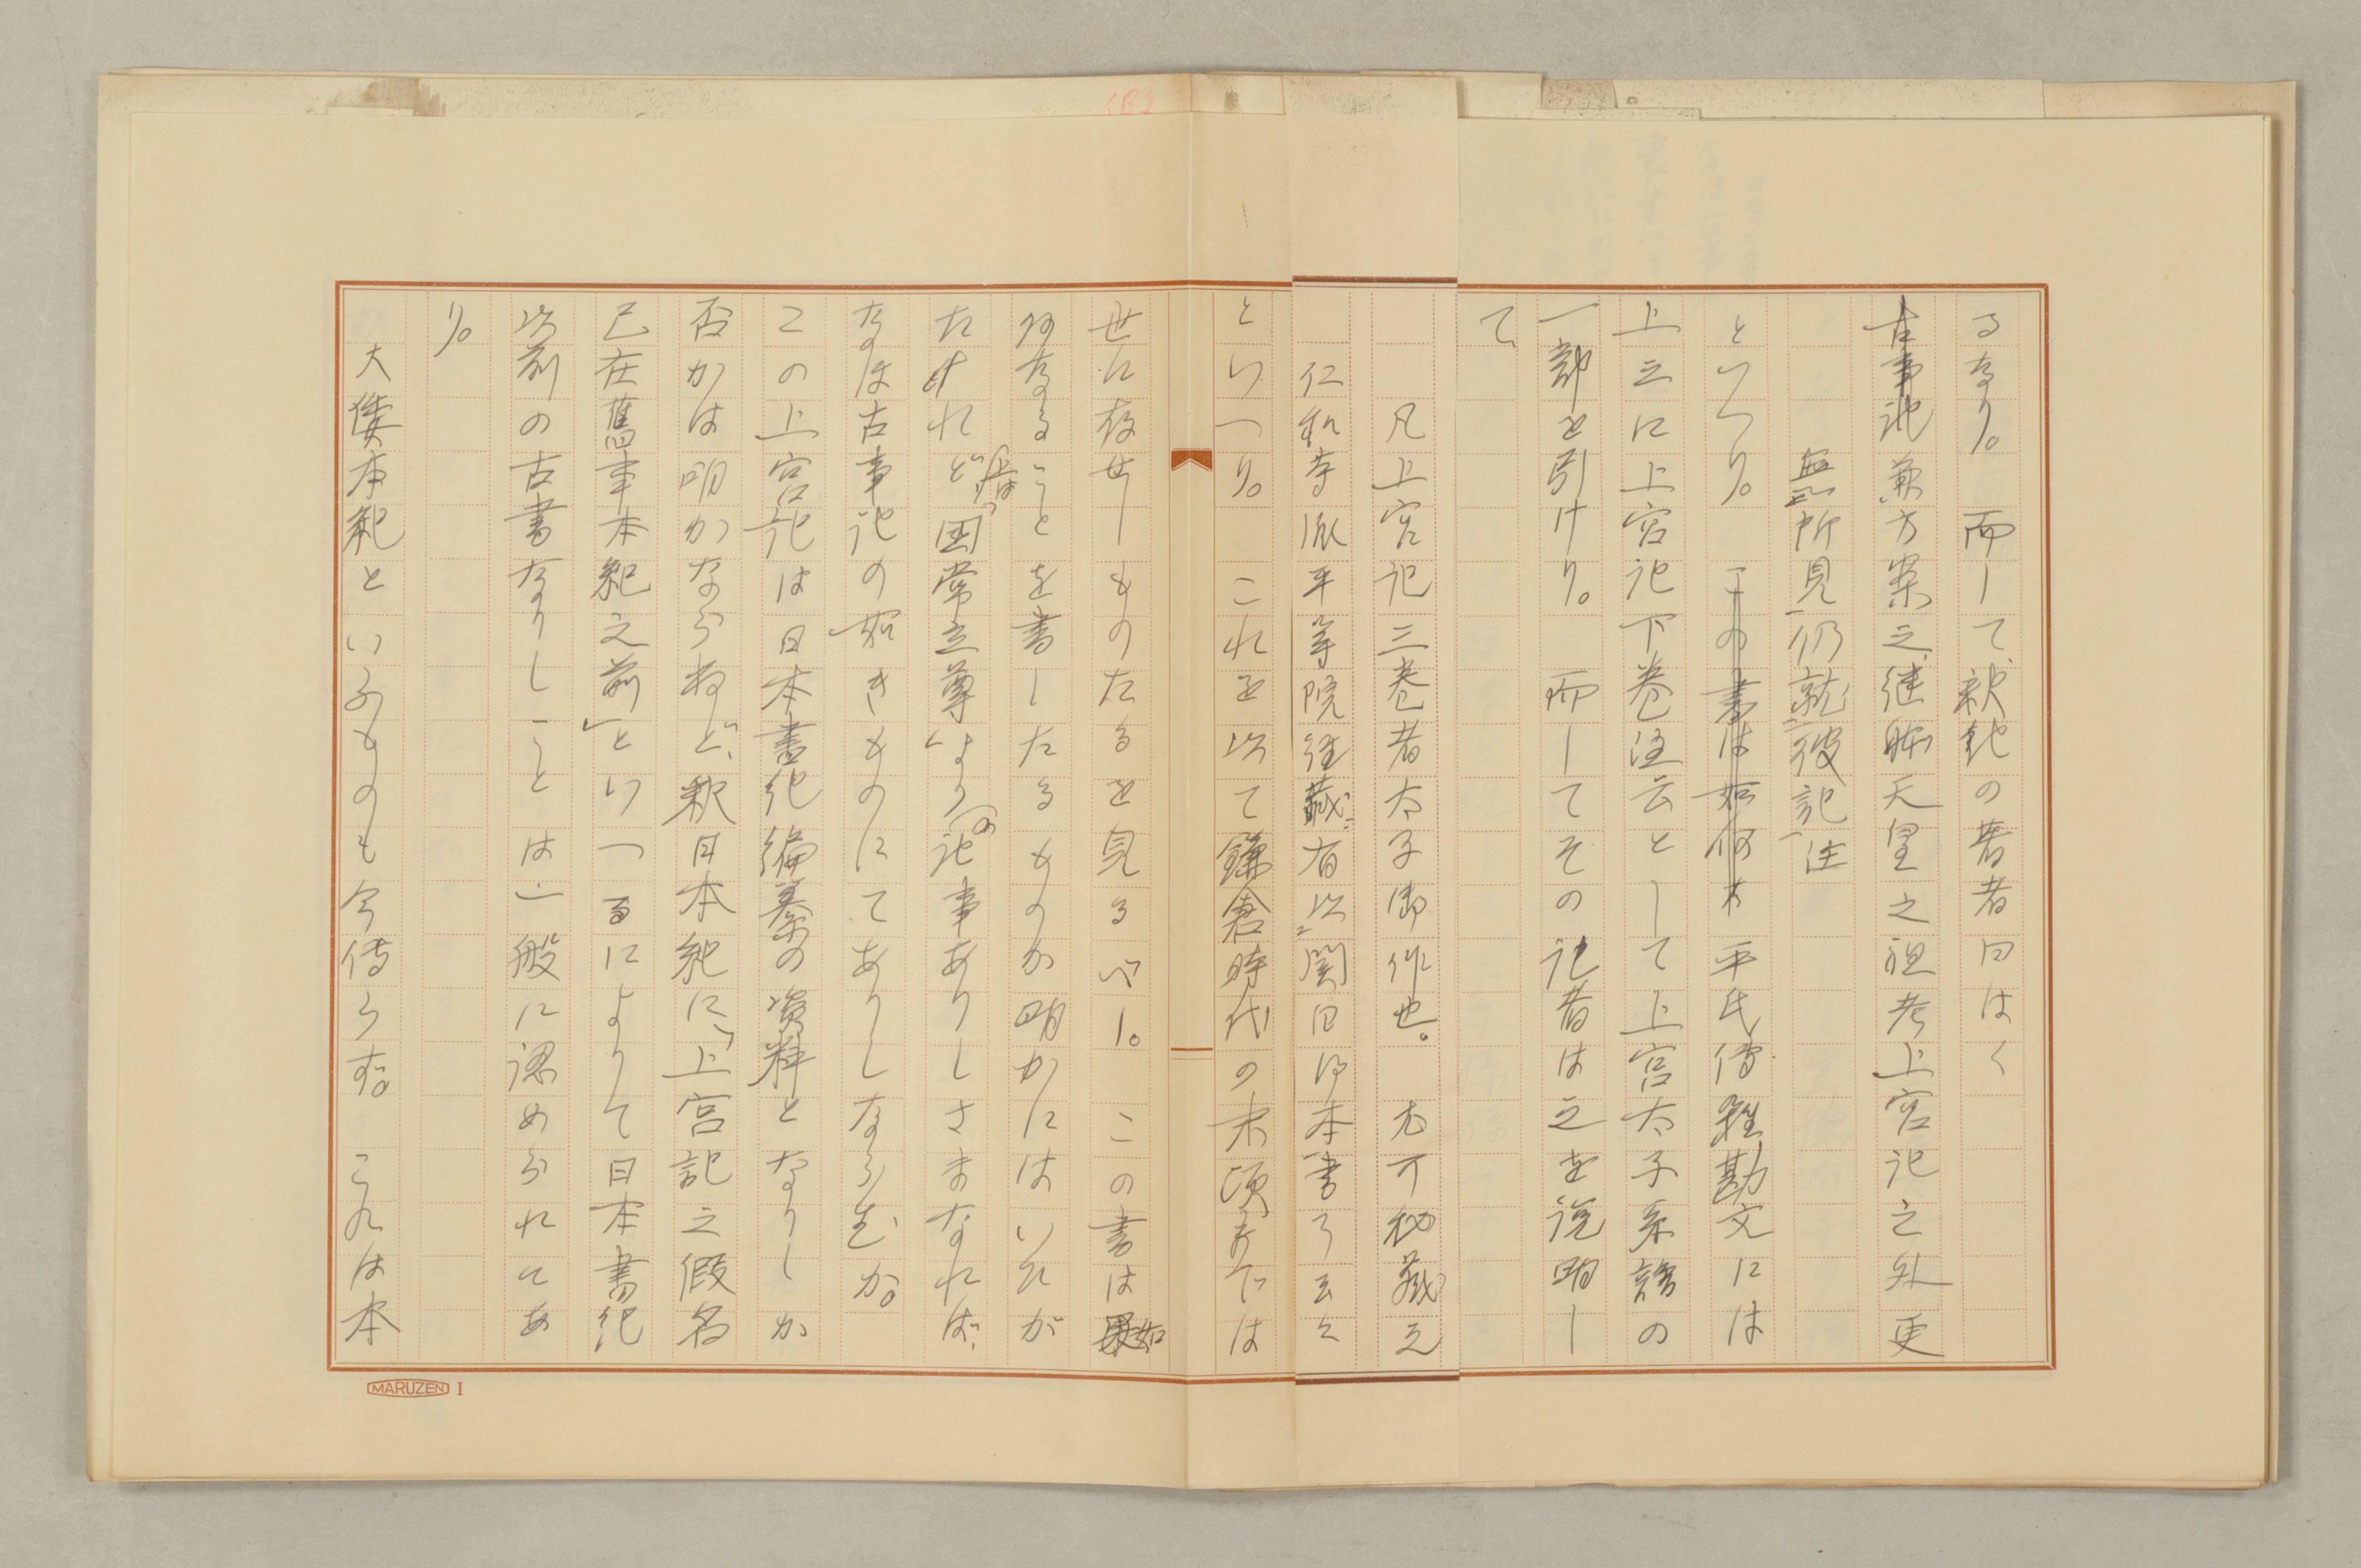 るなり。而して、釈紀の著者曰はく
古事記兼方案之、継体天皇之祖考上宮記之外更
無所見仍就彼記注
といへり。この書は如何 平氏伝雑勘文には
上三に上宮記下巻注云として上宮太子系譜の
一部を引けり。而してその記者は之を説明し
て、
凡上宮記三巻者太子御作也。尤可秘蔵之
仁和寺 平等院経蔵有此 本書了云々
といへり。これを以て鎌倉時代の末頃までは
世に存せしものたるを見るべし。この書は如
何なることを書したるものか明かにはいひが
たけれど、国常立尊」よりの記事ありしさまなれば、
なほ古事記の如きものにてありしならむか。
この上宮記は日本書紀編纂の資料となりしか
否かは明かならねど、釈日本紀に、「上宮記之假名
已在舊事本紀之前」といへるによりて日本書紀
以前の古書なりしことは一般に認められてあ
り。
大倭本紀といふものも今傳らず。これは本
MARUZEN I